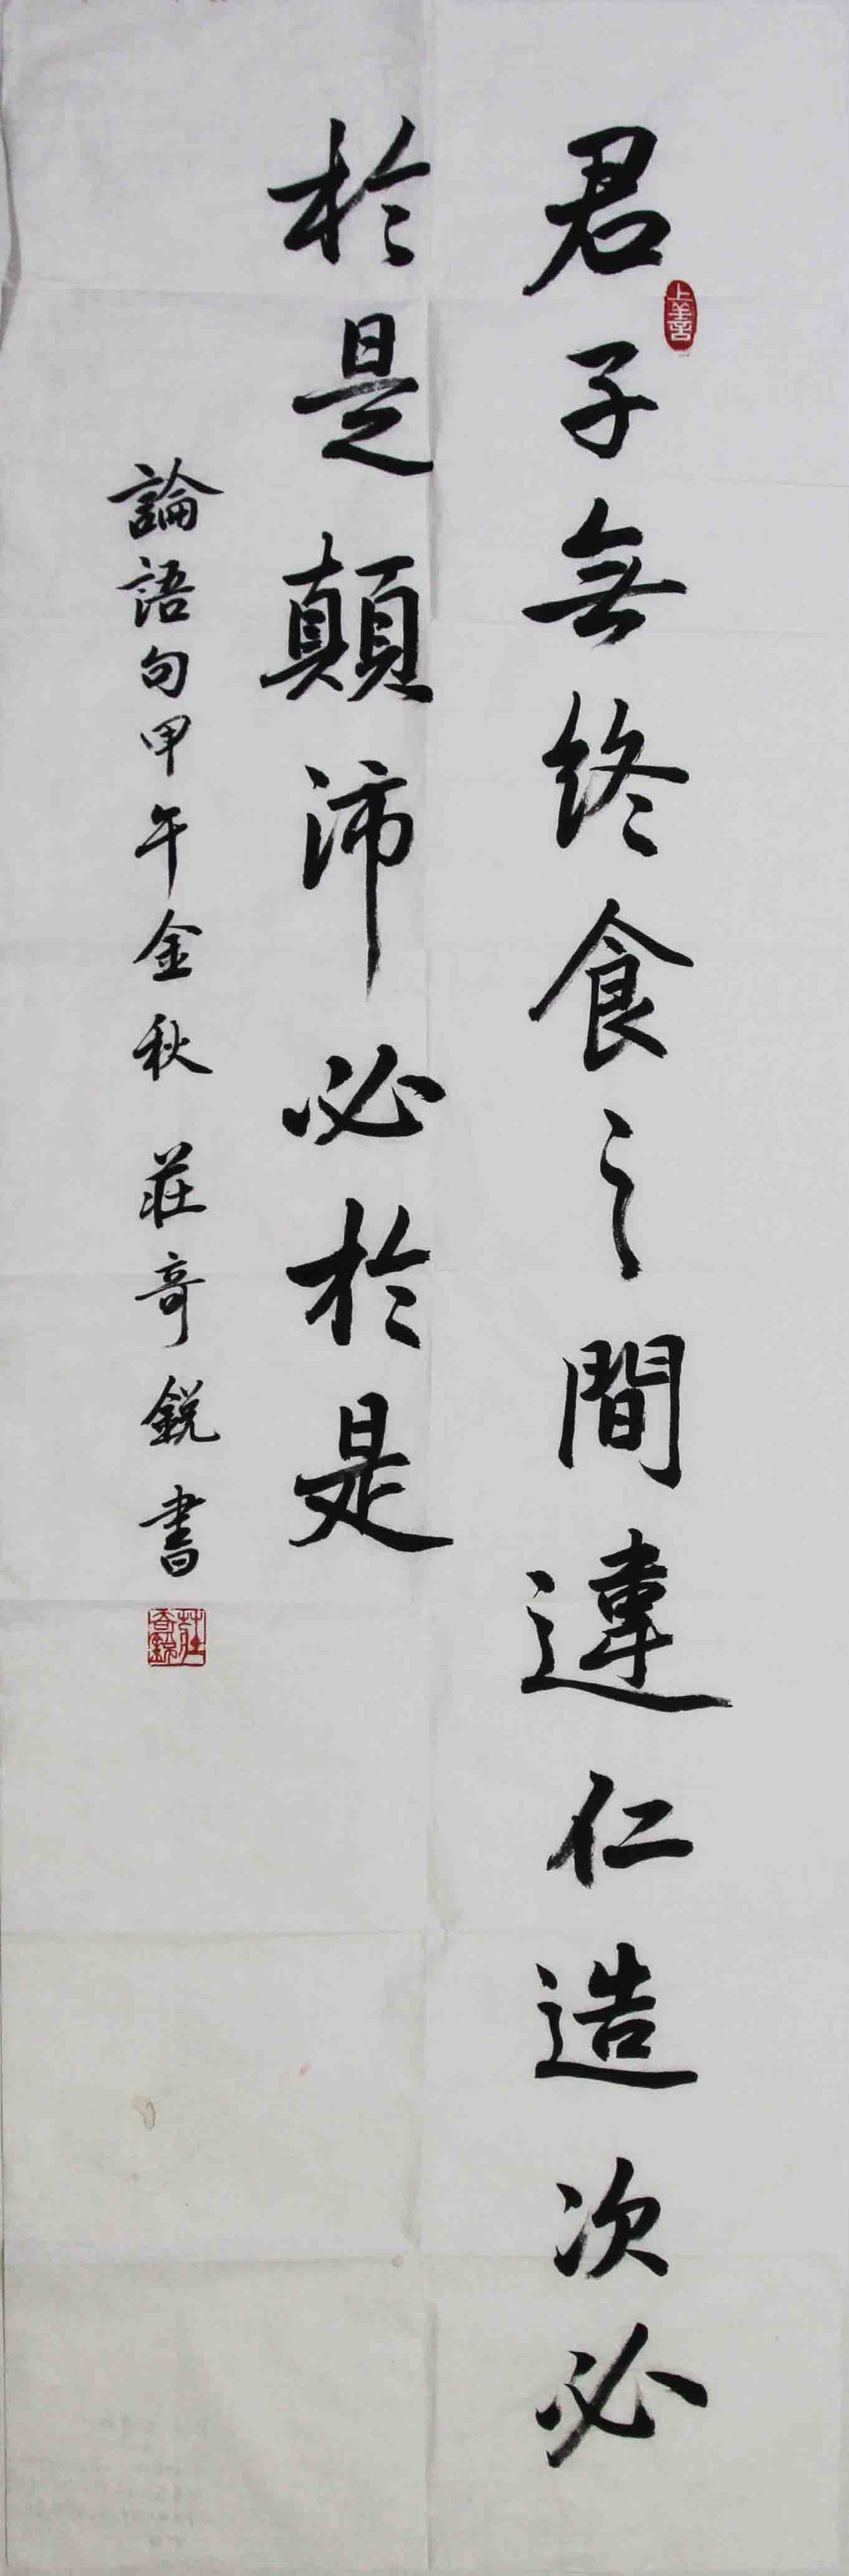 君子無終食之間違仁造次必
於是顛沛必於是
論語句甲午金秋 莊奇銳書
上善
莊奇銳